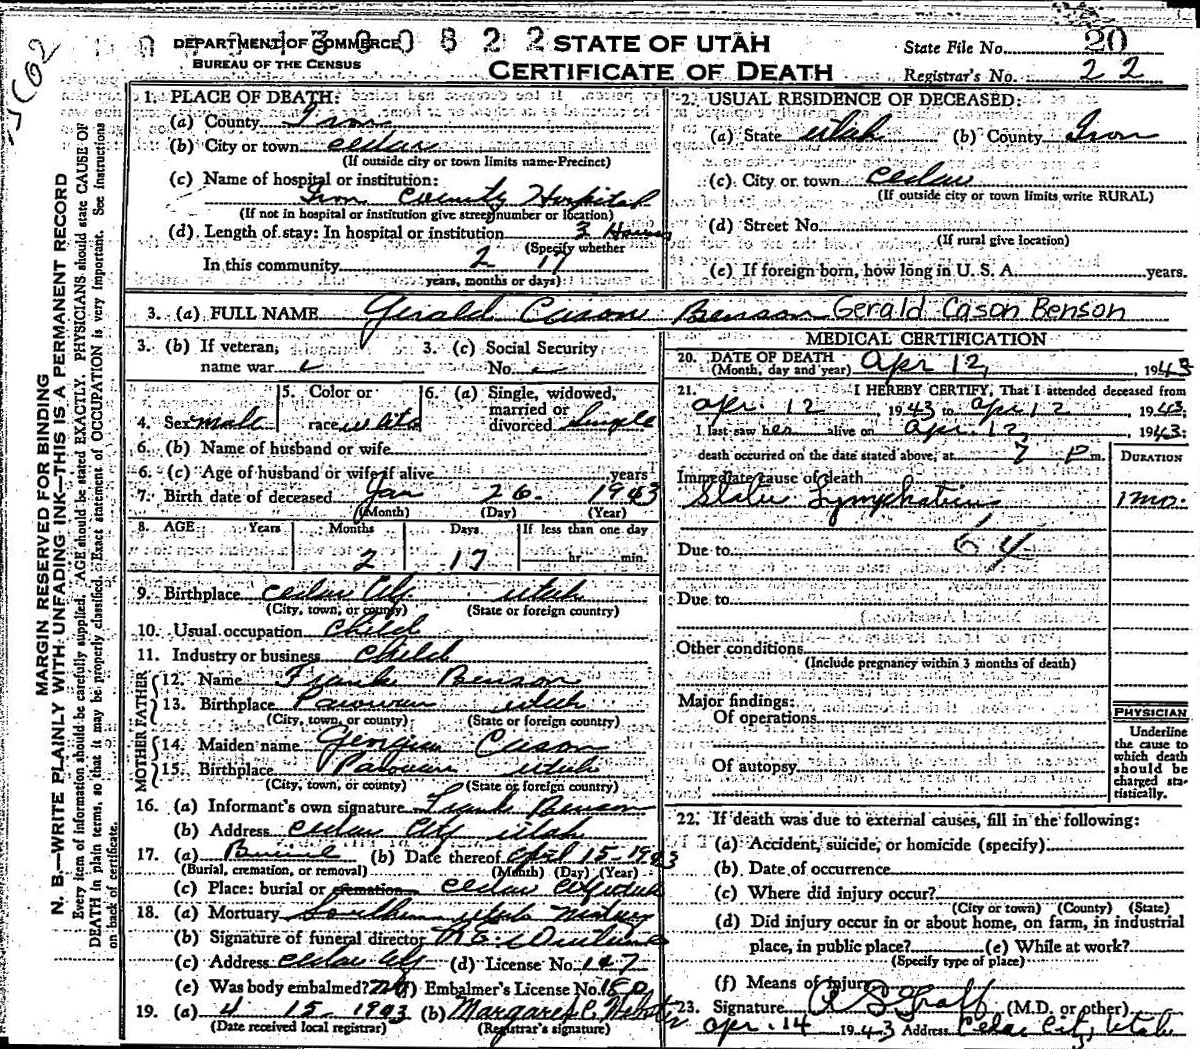 DEPARTMENT OF COMMERCE
BUREAU OF THE CENSUS
STATE OF UTAH
CERTIFICATE OF DEATH
State File No. 20
Registrar's No. 22
MARGIN RESERVED FOR BINDING
N. B.—WRITE PLAINLY WITH UNFADING INK—THIS IS A PERMANENT RECORD
Every item of information should be carefully supplied. AGE should be stated EXACTLY. PHYSICIANS should state CAUSE OF
DEATH in plain terms, so that it may be properly classified. Exact statement of OCCUPATION is very important. See instructions
on back of certificate.
1. PLACE OF DEATH:
(a) County Iron
(b) City or town Cedar
(If outside city or town limits name Precinct)
(c) Name of hospital or institution:
Iron County Hospital
(If not in hospital or institution give street number or location)
(d) Length of stay: In hospital or institution 3 Hours
(Specify whether
In this community 2 17
years, months or days)
2. USUAL RESIDENCE OF DECEASED:
(a) State Utah (b) County Iron
(c) City or town Cedar
(If outside city or town limits write RURAL)
(d) Street No.
(If rural give location)
(e) If foreign born, how long in U. S. A. years.
3. (a) FULL NAME Gerald Cason Benson Gerald Cason Benson
3. (b) If veteran, name war
3. (c) Social Security No.
4. Sex male
5. Color or race white
6. (a) Single, widowed, married or divorced Single
6. (b) Name of husband or wife
6. (c) Age of husband or wife if alive years
7. Birth date of deceased Jan 26 1943
(Month) (Day) (Year)
8. AGE Years Months Days If less than one day
2 17 hr. min.
9. Birthplace Cedar City Utah
(City, town, or county) (State or foreign country)
10. Usual occupation Child
11. Industry or business Child
FATHER
12. Name Frank Benson
13. Birthplace Parowan Utah
(City, town, or county) (State or foreign country)
MOTHER
14. Maiden name Cason
15. Birthplace Parowan Utah
(City, town, or county) (State or foreign country)
16. (a) Informant's own signature Frank Benson
(b) Address Cedar City Utah
17. (a) Burial (b) Date thereof April 15-1943
(Burial, cremation, or removal) (Month) (Day) (Year)
(c) Place: burial or cremation Cedar City Utah
18. (a) Mortuary Southern Utah Mortuary
(b) Signature of funeral director
(c) Address Cedar City (d) License No. 147
(e) Was body embalmed? (f) Embalmer's License No.
19. (a) 4 15 1943 (b) Margaret C. Webster
(Date received local registrar) (Registrar's signature)
MEDICAL CERTIFICATION
20. DATE OF DEATH (Month, day and year) Apr 12, 1943
21. I HEREBY CERTIFY, That I attended deceased from
Apr. 12, 1943 to Apr 12 1943;
I last saw her alive on Apr. 12, 1943;
death occurred on the date stated above, at 7 P m.
DURATION
Immediate cause of death
Status Lymphaticus 1 mo.
Due to
64
Due to
Other conditions
(Include pregnancy within 3 months of death)
Major findings:
Of operations
Of autopsy
PHYSICIAN
Underline
the cause to
which death
should be
charged sta-
tistically.
22. If death was due to external causes, fill in the following:
(a) Accident, suicide, or homicide (specify)
(b) Date of occurrence
(c) Where did injury occur?
(City or town) (County) (State)
(d) Did injury occur in or about home, on farm, in industrial
place, in public place? (e) While at work?
(Specify type of place)
(f) Means of injury
23. Signature Graff (M.D. or other)
Apr. 14 1943 Address Cedar City, Utah